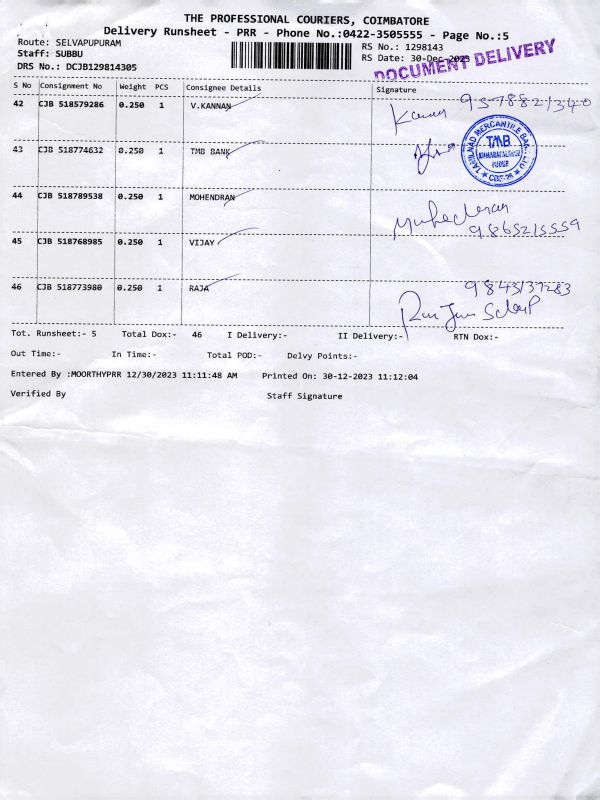 THE PROFESSIONAL COURIERS, COIMBATORE
Delivery Runsheet - PRR - Phone No.:0422-3505555 - Page No.:5
Route: SELVAPUPURAM
RS No.: 1298143
Staff: SUBBU
RS Date: 30-Dec-2023
DRS No.: DCJB129814305
DOCUMENT DELIVERY
S No Consignment No Weight PCS Consignee Details Signature
42 CJB 518579286 0.250 1 V.KANNAN
9578821340
43 CJB 518774632 0.250 1 TMB BANK
TAMILNAD MERCANTILE BANK LTD
TMB
CBE-26
44 CJB 518789538 0.250 1 MOHENDRAN
9865215559
45 CJB 518768985 0.250 1 VIJAY
46 CJB 518773980 0.250 1 RAJA
9843137283
Tot. Runsheet:- 5 Total Dox:- 46 I Delivery:- II Delivery:- RTN Dox:-
Out Time:- In Time:- Total POD:- Delvy Points:-
Entered By :MOORTHYPRR 12/30/2023 11:11:48 AM Printed On: 30-12-2023 11:12:04
Verified By Staff Signature